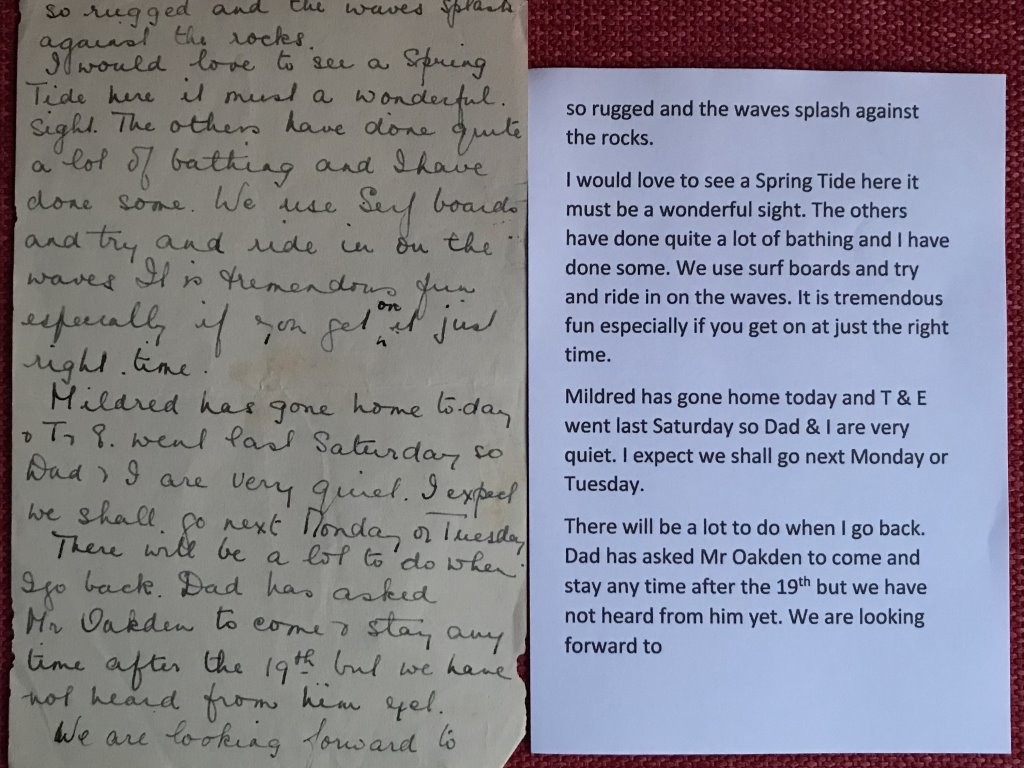 so rugged and the waves splash
against the rocks.
I would love to see a Spring
Tide here it must a wonderful.
Sight. The others have done quite
a lot of bathing and I have
done some. We use Serf boards
and try and ride in on the
waves It is tremendous fun
especially if you get on it just
right time.
Mildred has gone home to-day
& T & E. went last Saturday so
Dad & I are very quiet. I expect
we shall go next Monday or Tuesday
There will be a lot to do when
I go back. Dad has asked
Mr Oakden to come & stay any
time after the 19th but we have
not heard from him yet.
We are looking forward to
so rugged and the waves splash against
the rocks.
I would love to see a Spring Tide here it
must be a wonderful sight. The others
have done quite a lot of bathing and I have
done some. We use surf boards and try
and ride in on the waves. It is tremendous
fun especially if you get on at just the right
time.
Mildred has gone home today and T & E
went last Saturday so Dad & I are very
quiet. I expect we shall go next Monday or
Tuesday.
There will be a lot to do when I go back.
Dad has asked Mr Oakden to come and
stay any time after the 19th but we have
not heard from him yet. We are looking
forward to